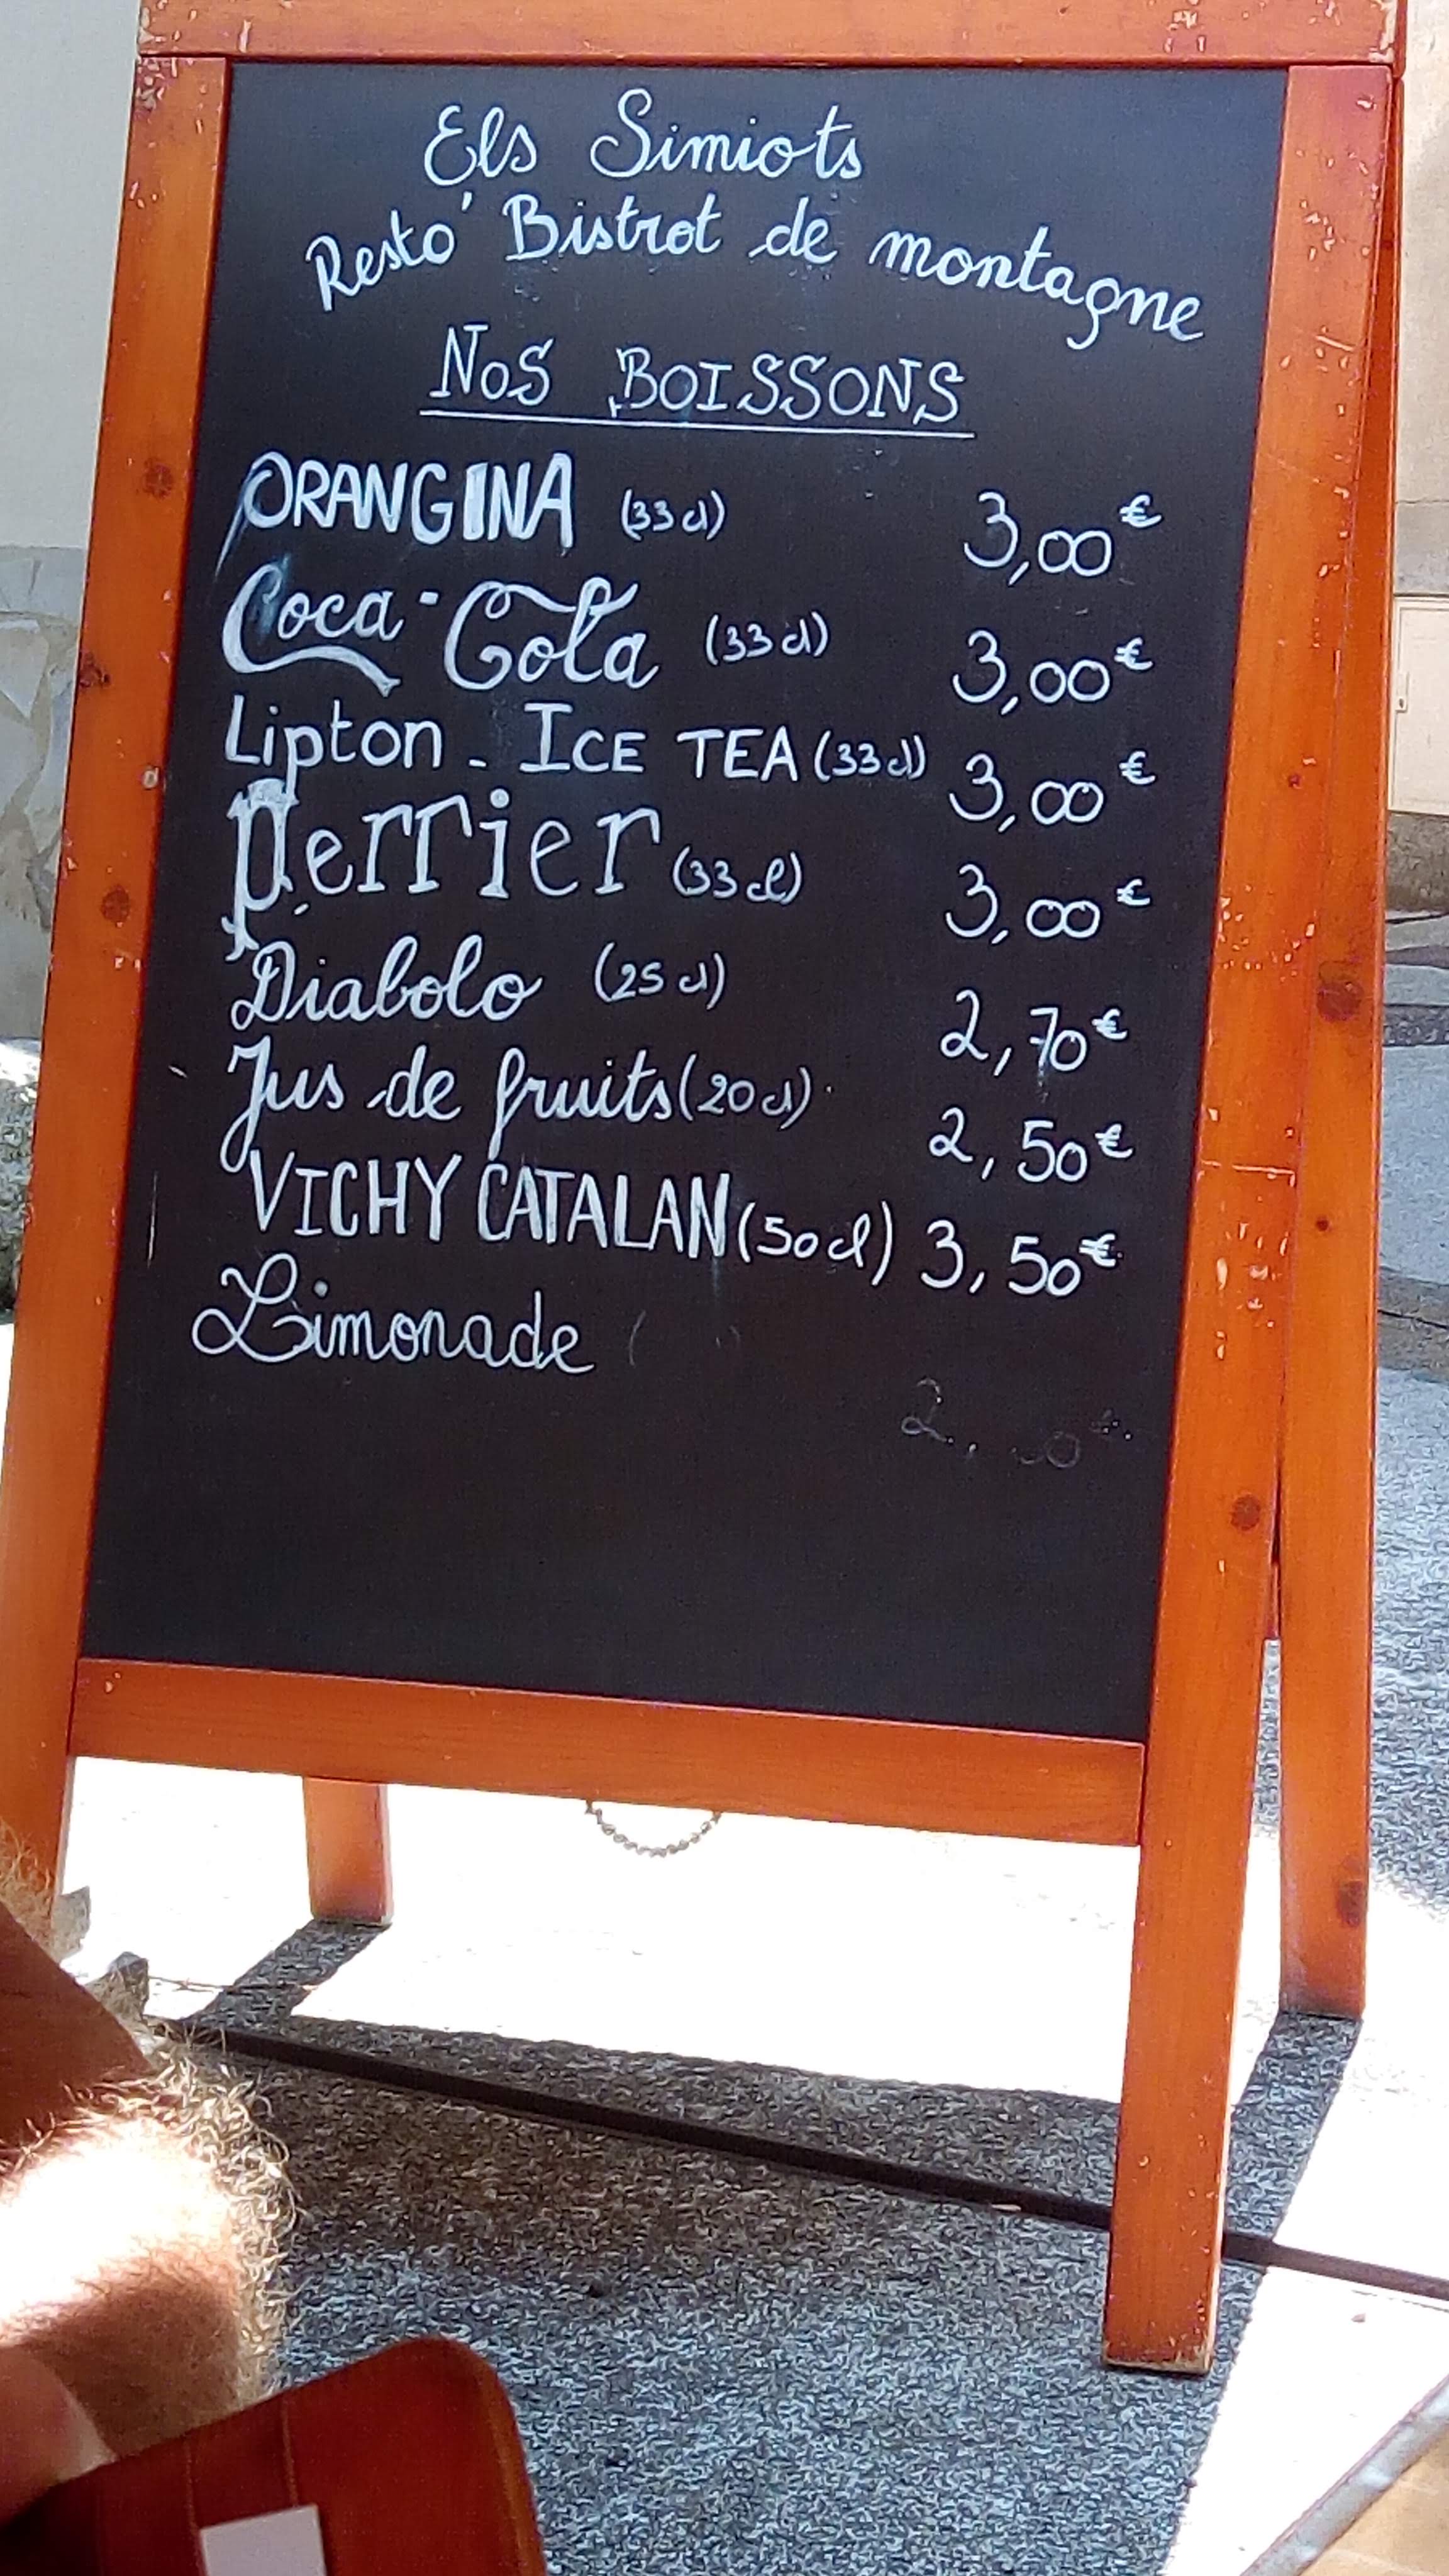 Els Simiots
Resto' Bistrot de montagne
NOS BOISSONS
ORANGINA (33cl) 3,00€
Coca-Cola (33cl) 3,00€
Lipton - ICE TEA (33cl) 3,00€
Perrier (33cl) 3,00€
Diabolo (25cl) 2,70€
Jus de fruits (20cl) 2,50€
VICHY CATALAN (50cl) 3,50€
Limonade